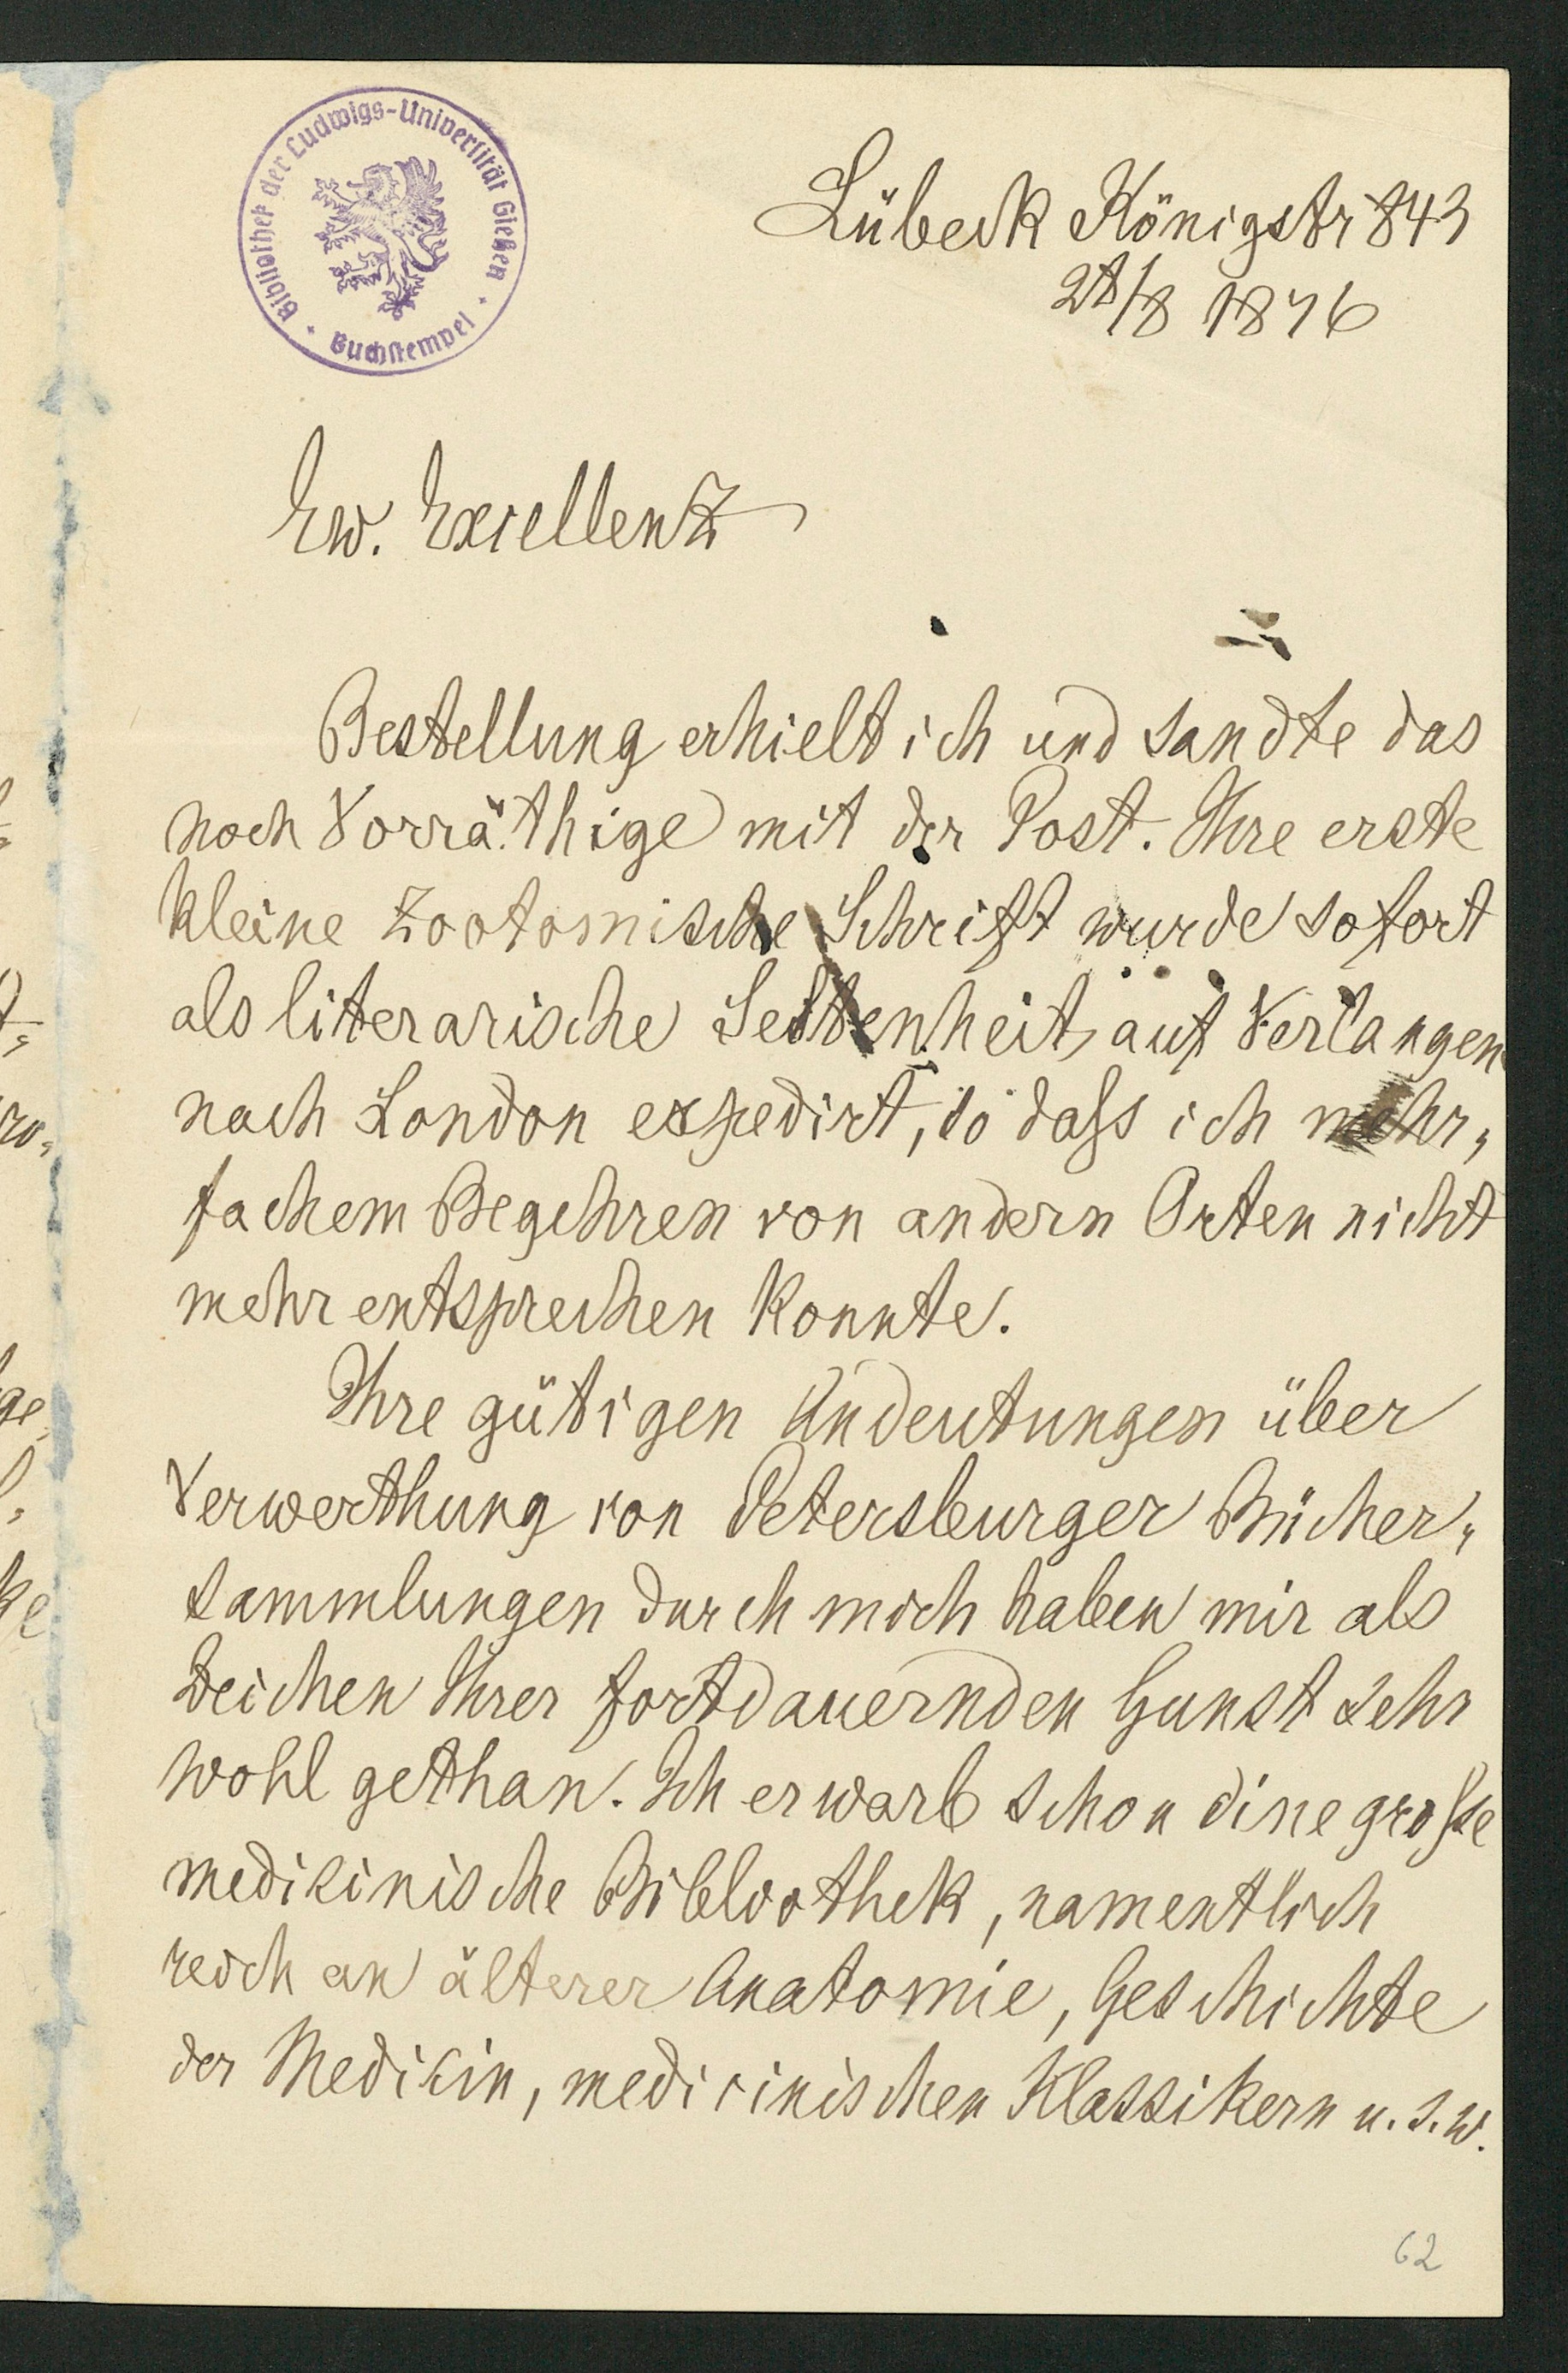 Bibliothek der Ludwigs-Universität Gießen
Buchstempel
Lübeck Königstr 843
28/8 1876
Ew. Excellenz
Bestellung erhielt ich und sandte das
noch Vorräthige mit der Post. Ihre erste
kleine zootomische Schrift wurde sofort
als literarische Seltenheit auf Verlangen
nach London expedirt, so daſs ich mehr„
fachem Begehren von andern Orten nicht
mehr entsprechen konnte.
Ihre gütigen Andeutungen über
Verwerthung von Petersburger Bücher„
sammlungen durch mich haben mir als
Zeichen Ihrer fortdauernden Gunst sehr
wohl gethan. Ich erwarb schon eine groſse
medicinische Bibliothek, namentlich
reich an älterer Anatomie, Geschichte
der Medicin, medicinischen Klassikern u.s.w.
62